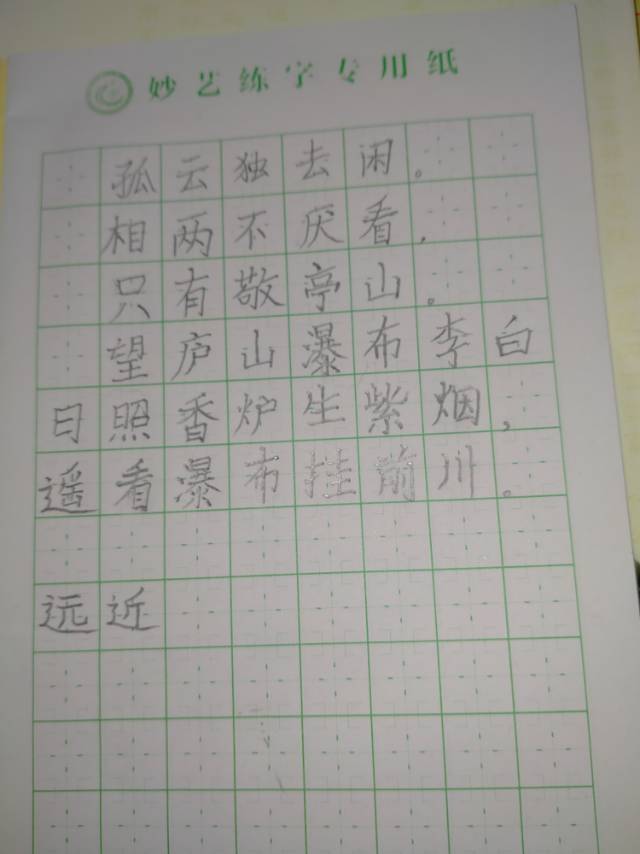 妙艺练字专用纸
孤云独去闲。
相两不厌看，
只有敬亭山。
望庐山瀑布李白
日照香炉生紫烟，
遥看瀑布挂前川。
远近